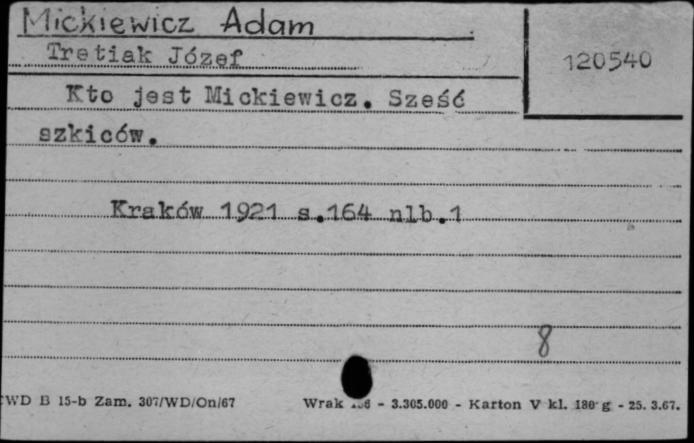 Mickiewicz Adam
Tretiak Józef
120540
Kto jest Mickiewicz. Sześć
szkiców.
Kraków 1921 s.164 nlb.1
8
WD B 15-b Zam. 307/WD/On/67
Wrak - 3.305.000 - Karton V kl. 180 g - 25. 3.67.